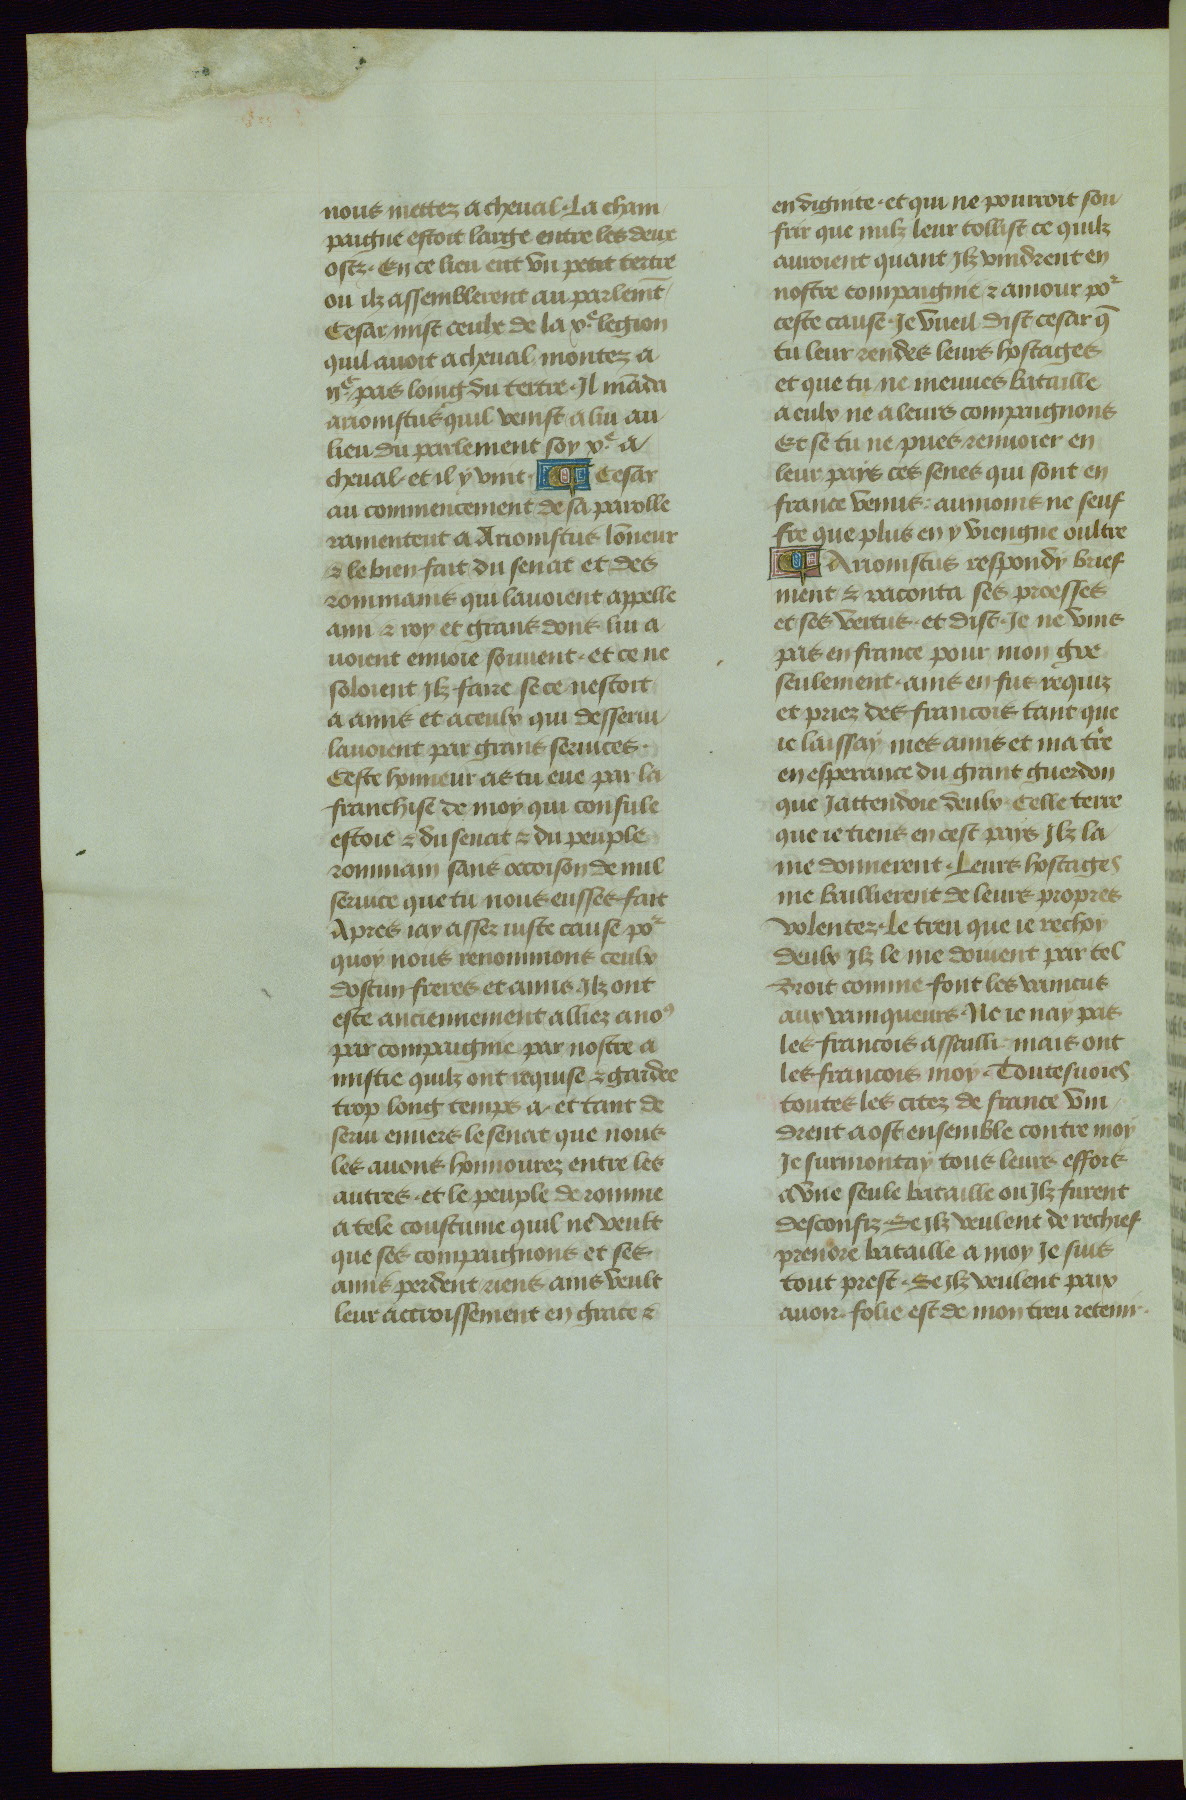 nous mettez a cheual. La cham
paigne estoit large entre les deux
ostz. En ce lieu eut vn petit tertre
ou ilz assemblerent au parlem̄t
Cesar mist ceulx de la xᵉ legion
quil auoit a cheual montez a
ijᶜ pas loing du tertre. Il māda
arionistus quil venist a lui au
lieu du parlement soy xᵉ a
cheual. et il y vint. ¶ Cesar
au commencement de sa parolle
ramenteut a Arionistus lōneur
& le bien fait du senat et des
rommains qui lauoient appelle
ami & roy et grans dons lui a
uoient enuoie souuent. et ce ne
soloient Ilz faire se ce nestoit
a amis et a ceulx qui desserui
lauoient par grans seruices.
Ceste honneur as tu eue par la
franchise de moy qui consule
estoie & du senat & du peuple
rommain sans occoison de nul
seruice que tu nous eusses fait
Apres iay assez iuste cause poʳ
quoy nous renommons ceulx
dostun freres et amis. Ilz ont
este anciennement alliez a noꝰ
par compaignie par nostre a
mistie quilz ont requise & gardee
trop long temps a. et tant de
serui enuers le senat que nous
les auons honnourez entre les
autres. et le peuple de romme
a tele coustume quil ne veult
que ses compaignons et ses
amis perdent riens ains veult
leur accroissement en grace &
en dignite. et qui ne pourroit sou
frir que nulz leur tollist ce quilz
auroient quant Ilz vindrent en
nostre compaignie & amour poʳ
ceste cause. Je vueil dist cesar q̄
tu leur rendes leurs hostages
et que tu ne meuues bataille
a eulx ne a leurs compaignons
Et se tu ne pues renuoier en
leur pays ces senes qui sont en
france venus. aumoins ne seuf
fre que plus en y viengne oultre
¶ Arionistus respondy brief
ment & raconta ses proesses
et ses vertus. et dist. Je ne vins
pas en france pour mon gre
seulement. ains en fus requiz
et priez des francois tant que
ie laissay mes amis et ma tr̄e
en esperance du grant guerdon
que Jattendoie deulx. Celle terre
que ie tiens en cest pays Ilz la
me donnerent. Leurs hostages
me baillierent de leurs propres
volentez. Le treu que ie rechoy
deulx Ilz le me doiuent par tel
droit comme font les vaincus
aux vainqueurs. Ne ie nay pas
les francois assailli. mais ont
les francois moy. Toutesuoies
toutes les citez de france vin
drent a ost ensemble contre moy
Je surmontay tous leurs effors
a vne seule bataille ou Ilz furent
desconfiz. Se ilz veulent de rechief
prendre bataille a moy Je suis
tout prest. Se Ilz veulent paix
auoir. folie est de mon treu retenir.